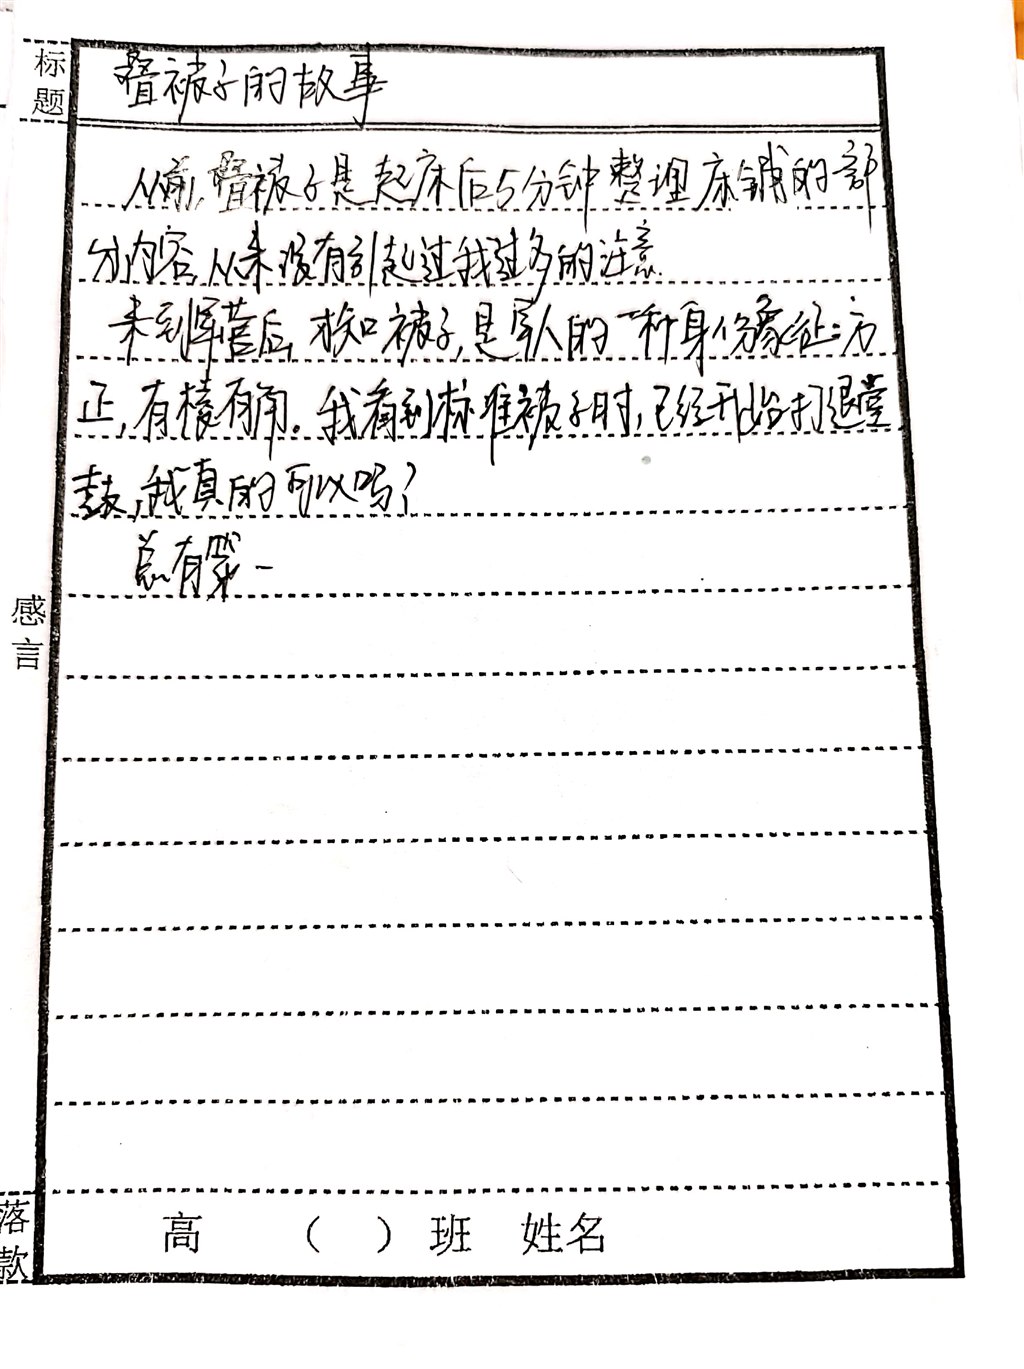 标题
叠被子的故事
从前,叠被子是起床后5分钟整理床铺的部
分内容,从来没有引起过我过多的注意.
来到军营后,方知被子,是军人的一种身份象征:方
正,有棱有角。我看到标准被子时,已经开始打退堂
鼓,我真的可以吗?
总有第一
感言
落款
高 ( ) 班 姓名